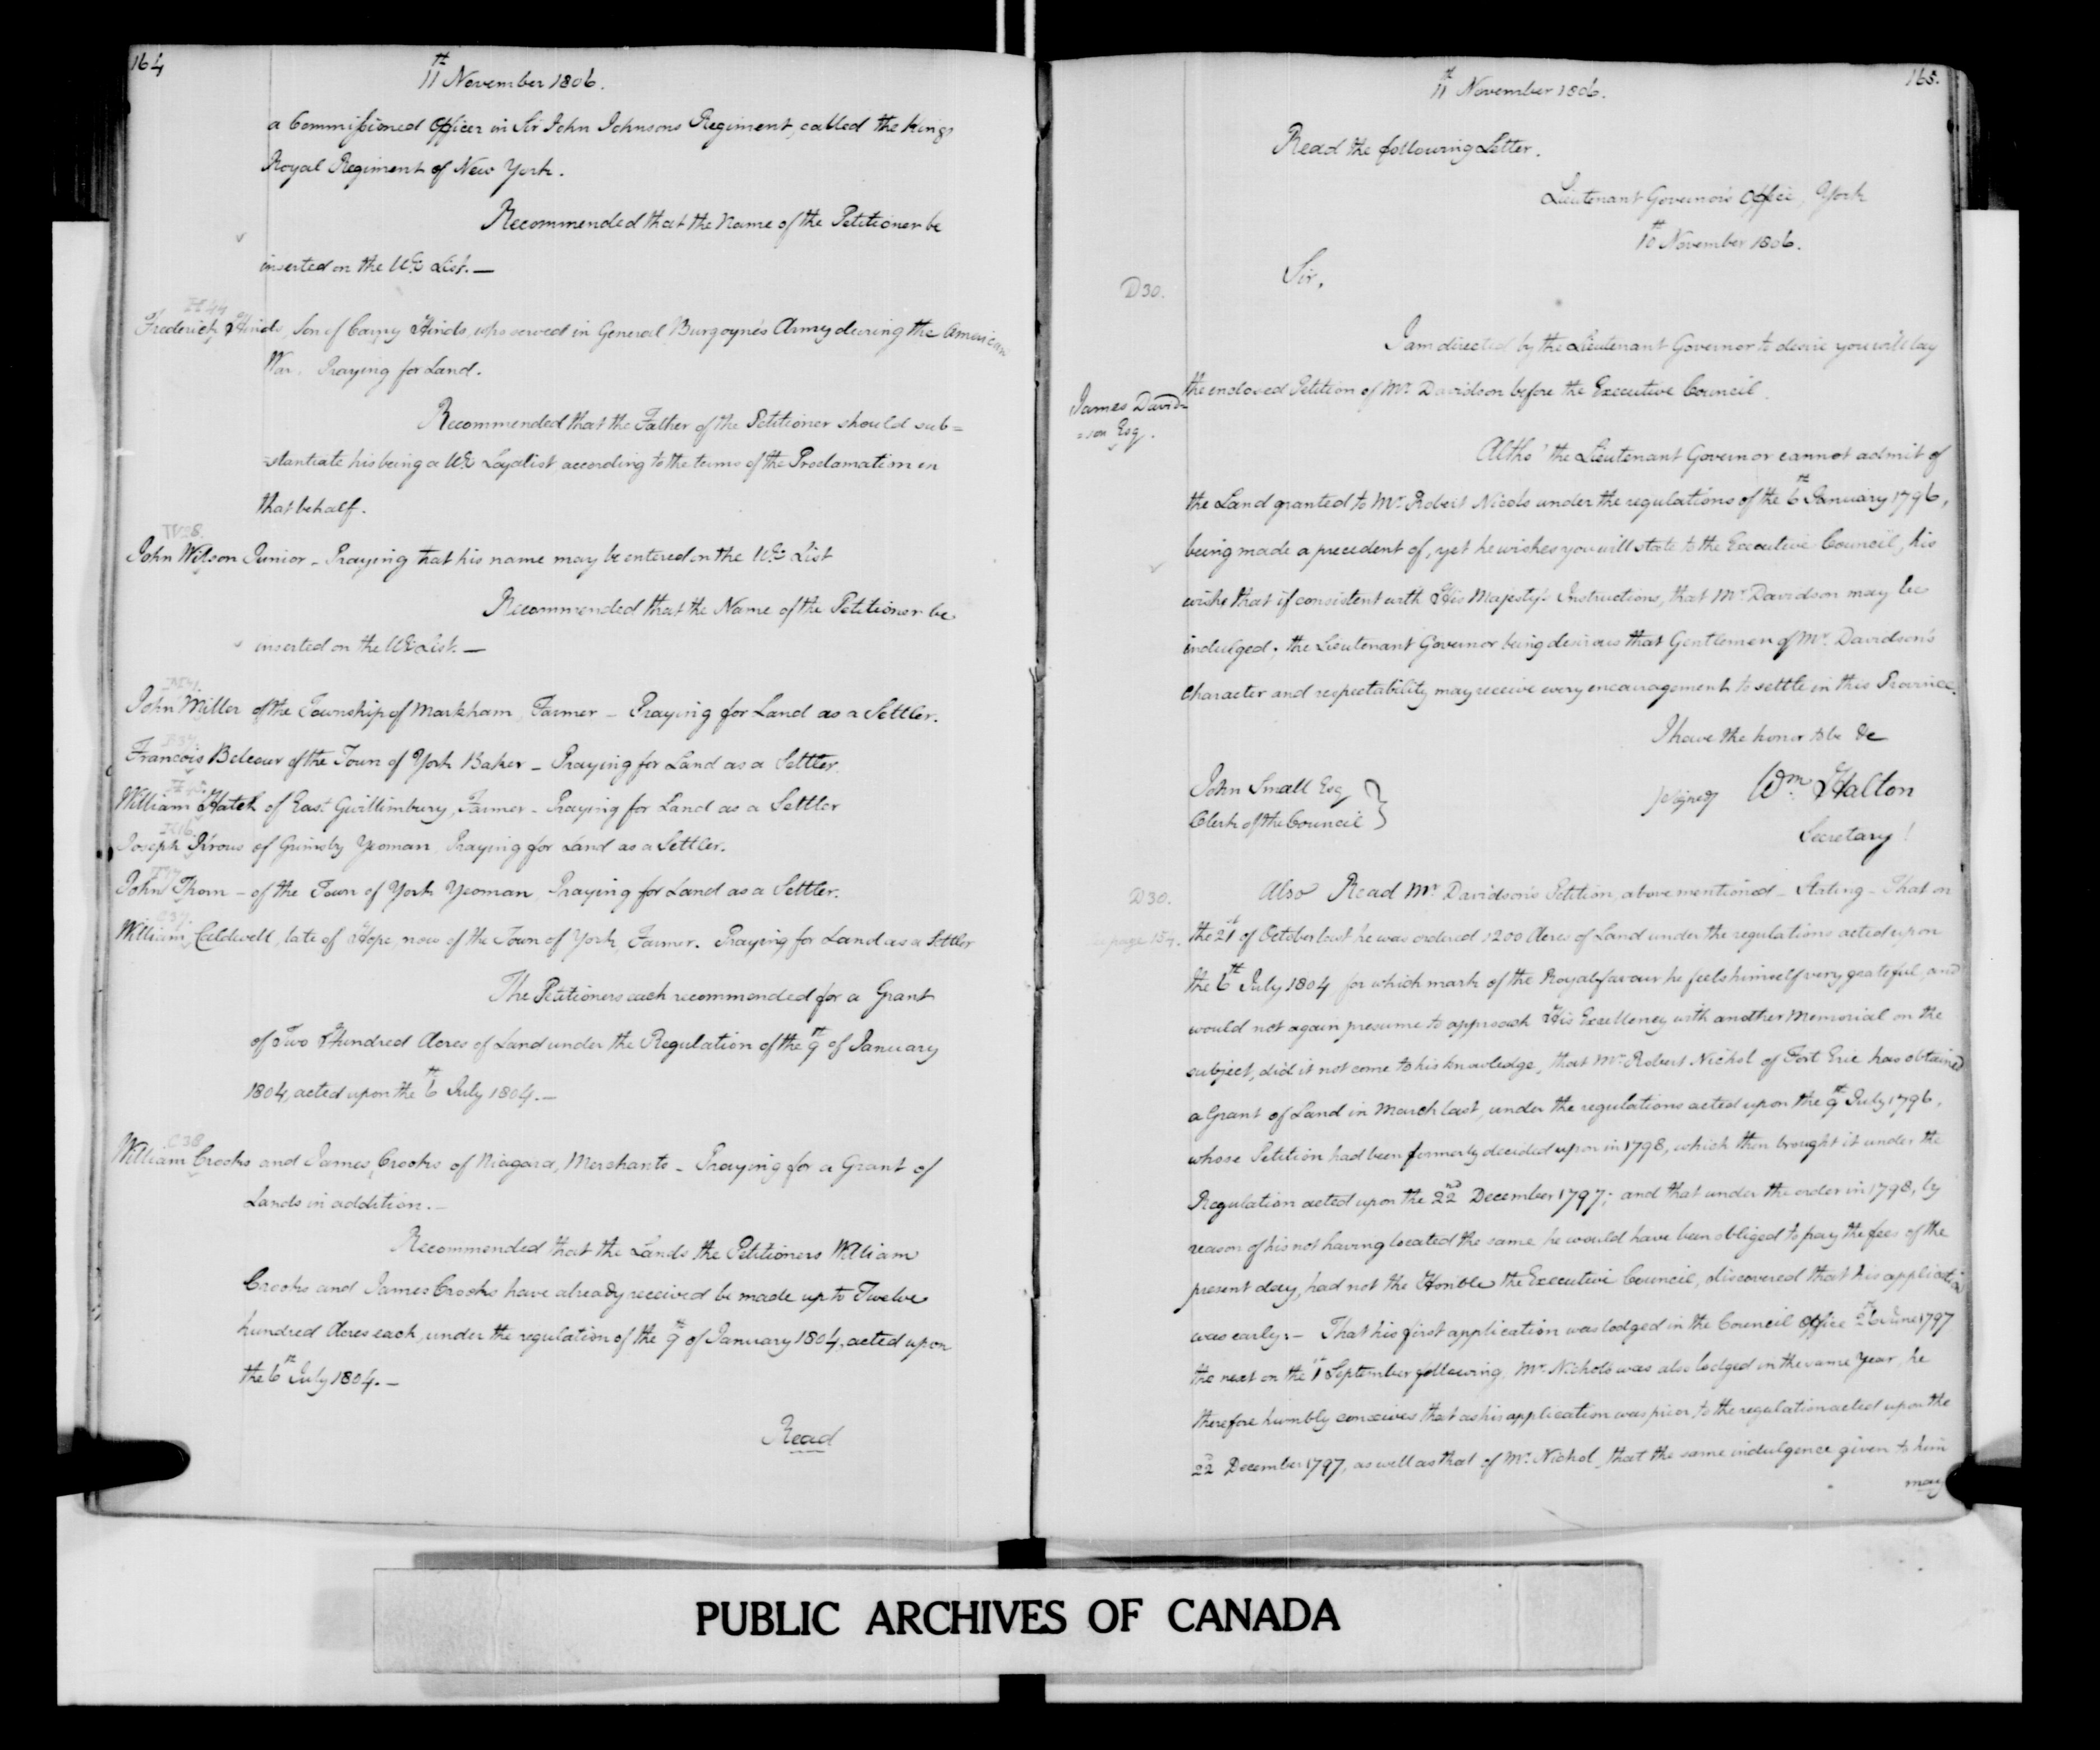 164
11th November 1806.
a Commissioned Officer in Sir John Johnsons Regiment, called the Kings
Royal Regiment of New York.
Recommended that the Name of the Petitioner be
inserted on the UE List. —
H44
Frederick Hinds, Son of Hinds, who served in General Burgoyne's Army during the American
War. Praying for Land.
Recommended that the Father of the Petitioner should sub=
=stantiate his being a UE Loyalist according to the terms of the Proclamation in
that behalf.
John Wilson Junior – Praying that his name may be entered on the UE List
Recommended that the Name of the Petitioner be
inserted on the UE List. —
John Miller of the Township of Markham, Farmer – Praying for Land as a Settler.
Francois Belcour of the Town of York Baker – Praying for Land as a Settler.
William Hatch of East Gwillimbury, Farmer – Praying for Land as a Settler
K16
Joseph Krous of Grimsby Yeoman, Praying for Land as a Settler.
John Thom – of the Town of York Yeoman, Praying for Land as a Settler.
C37.
William Caldwell, late of Hope, now of the Town of York, Farmer. Praying for Land as a Settler
The Petitioners each recommended for a Grant
of Two Hundred Acres of Land under the Regulation of the 9th of January
1804, acted upon the 6th July 1804. —
C38
William Crooks and James Crooks of Niagara, Merchants – Praying for a Grant of
Lands in addition. –
Recommended that the Lands the Petitioners William
Crooks and James Crooks have already received be made up to Twelve
hundred Acres each, under the regulation of the 9th of January 1804, acted upon
the 6th July 1804. –
Read
165.
11th November 1806.
Read the following Letter.
Lieutenant Governor's Office, York
10th November 1806.
Sir,
D30.
I am directed by the Lieutenant Governor to desire you will lay
the enclosed Petition of Mr. Davidson before the Executive Council.
James David=
=son Esq.
Altho' the Lieutenant Governor cannot admit of
the Land granted to Mr. Robert Nicols under the regulations of the 6th January 1796,
being made a precedent of, yet he wishes you will state to the Executive Council, his
wish, that if consistent with His Majesty's Instructions, that Mr. Davidson may be
indulged; the Lieutenant Governor being desirous that Gentlemen of Mr. Davidson's
Character and respectability may receive every encouragement to settle in this Province.
I have the honor to be &c
John Small Esq
Clerk of the Council }
signed Wm. Halton
Secretary!
D30.
Also Read Mr. Davidson's Petition, above mentioned – Stating – That on
page 154.
the 21st of October last he was ordered 1200 Acres of Land under the regulations acted upon
the 6th July 1804 for which mark of the Royal favour he feels himself very grateful, and
would not again presume to approach His Excellency with another Memorial on the
subject, did it not come to his knowledge, that Mr. Robert Nichol of Fort Erie has obtained
a Grant of Land in March last, under the regulations acted upon the 9th July 1796,
whose Petition had been formerly decided upon in 1798, which then brought it under the
Regulation acted upon the 22nd December 1797; and that under the order in 1798, by
reason of his not having located the same he would have been obliged to pay the fees of the
present day, had not the Honble the Executive Council, discovered that his application
was early: – That his first application was lodged in the Council Office June 1797
the next on the 1st September following, Mr. Nichols was also lodged in the same Year, he
therefore humbly conceives that as his application was prior, to the regulation acted upon the
22nd December 1797, as well as that of Mr. Nichol, that the same indulgence given to him
may
PUBLIC ARCHIVES OF CANADA